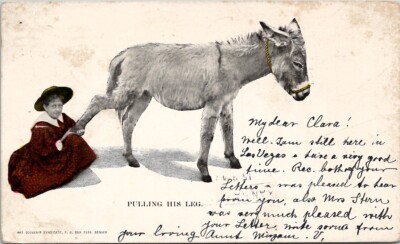 My dear Clara!
Well. I am still here in
Las Vegas & have a very good
time. Rec. both of your
Letters & was pleased to hear
from you, also Mrs Stern
was very much pleased with
your Letter, write soon from
your loving Aunt
PULLING HIS LEG.